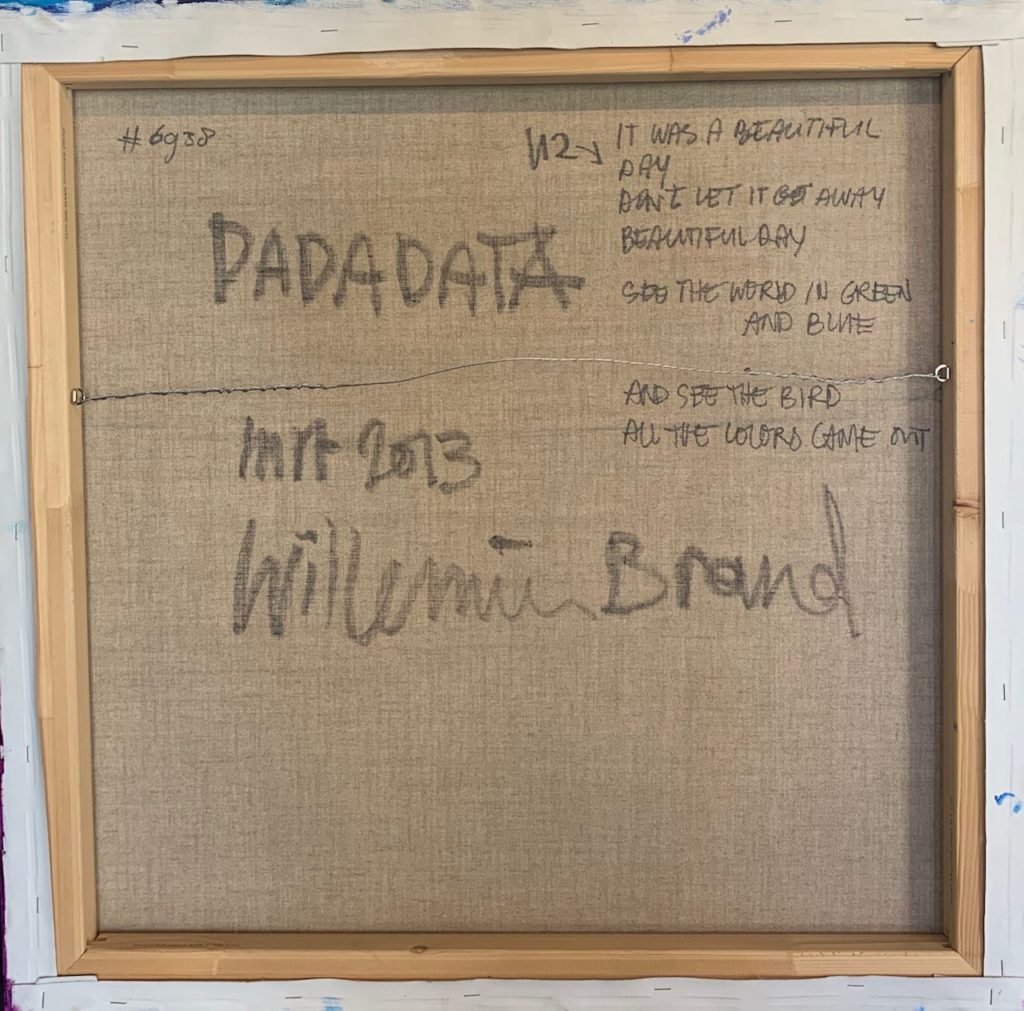 #6938
U2→ IT WAS A BEAUTIFUL
DAY
DON'T LET IT GET AWAY
BEAUTIFUL DAY
SEE THE WORLD IN GREEN
AND BLUE
AND SEE THE BIRD
ALL THE COLORS CAME OUT
DADADATA
2013
Willemien Brand